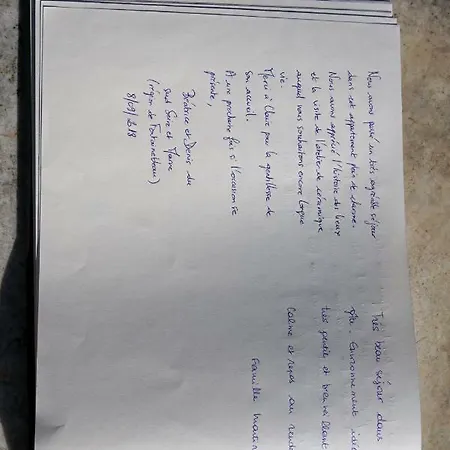 Nous avons passé un très agréable séjour
dans cet appartement plein de charme.
Nous avons apprécié l'histoire des lieux
et la visite de l'atelier de céramique
auquel nous souhaitons encore longue
vie.
Merci à Claire pour la gentillesse de
son accueil.
A une prochaine fois si l'occasion se
présente,
Béatrice et Denis du
sud Seine et Marne
(région de Fontainebleau)
8/09/2018
Très beau séjour dans
gîte. Environnement
très gentils et bienveillant
calme et repos au
Famille